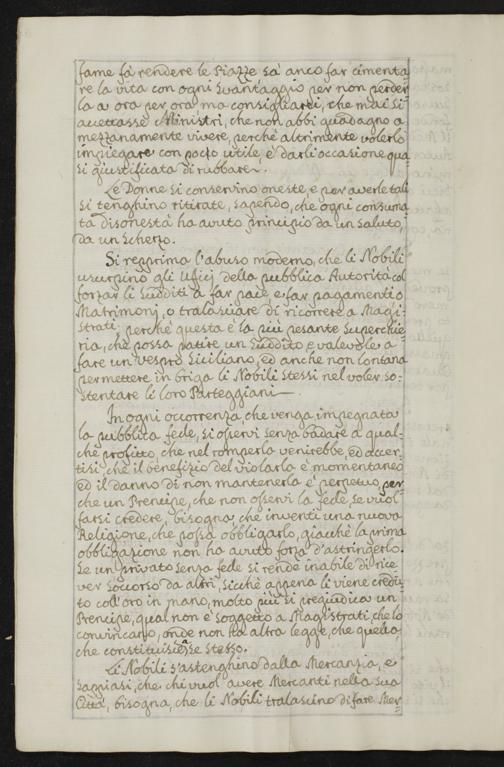 fame fà rendere le Piazze sà anco far cimenta
re la vita con ogni svantaggio per non perder
la a ora per ora, ma consiglierei, che mai si
accettasse Ministri, che non abbi guadagno a
mezzanamente vivere, perchè altrimente volerlo
impiegare con poco utile, è darli occasione qua
si giustificata di rubbare.
Le Donne si conservino oneste, e per averle tali
si tenghino ritirate, sapendo, che ogni consuma
ta disonestà ha avuto principio da un saluto,
da un scherzo.
Si reprima l'abuso moderno, che li Nobili
usurpino gli Ufizj della pubblica Autorità col
forzar li sudditi a far pace e far pagamenti o
Matrimonj, o tralasciare di ricorrere a Magi=
strati; perchè questa è la più pesante superchie
ria, che possa patire un suddito e valevole a
fare un Vespro Siciliano, ed anche non lontana
permettere in briga li Nobili stessi nel voler so=
stentare li loro Parteggiani
In ogni occorrenza, che venga impegnata
la pubblica fede, si osservi senza badare a qual=
che profitto, che nel romperla venirebbe, ed accer=
tisi che il benefizio del violarla è momentaneo
ed il danno di non mantenerla è perpetuo, per
che un Prencipe, che non osservi la fede, se vuol
farsi credere, bisogna che inventi una nuova
Religione, che possa obbligarlo, giacchè la prima
obbligazione non ha avuto forza d'astringerlo.
Se un privato senza fede si rende inabile di rice
ver soccorso da altri, sicchè appena li viene credu
to coll'oro in mano, molto più si pregiudica un
Prencipe, qual non è soggetto a Magistrati, che lo
convincano, onde non ha altra legge, che quello,
che constituisce se stesso.
Li Nobili s'astenghino dalla Mercanzia, e
sappiasi, che chi vuol avere Mercanti nella sua
Città, bisogna, che li Nobili tralascino di fare Mer=